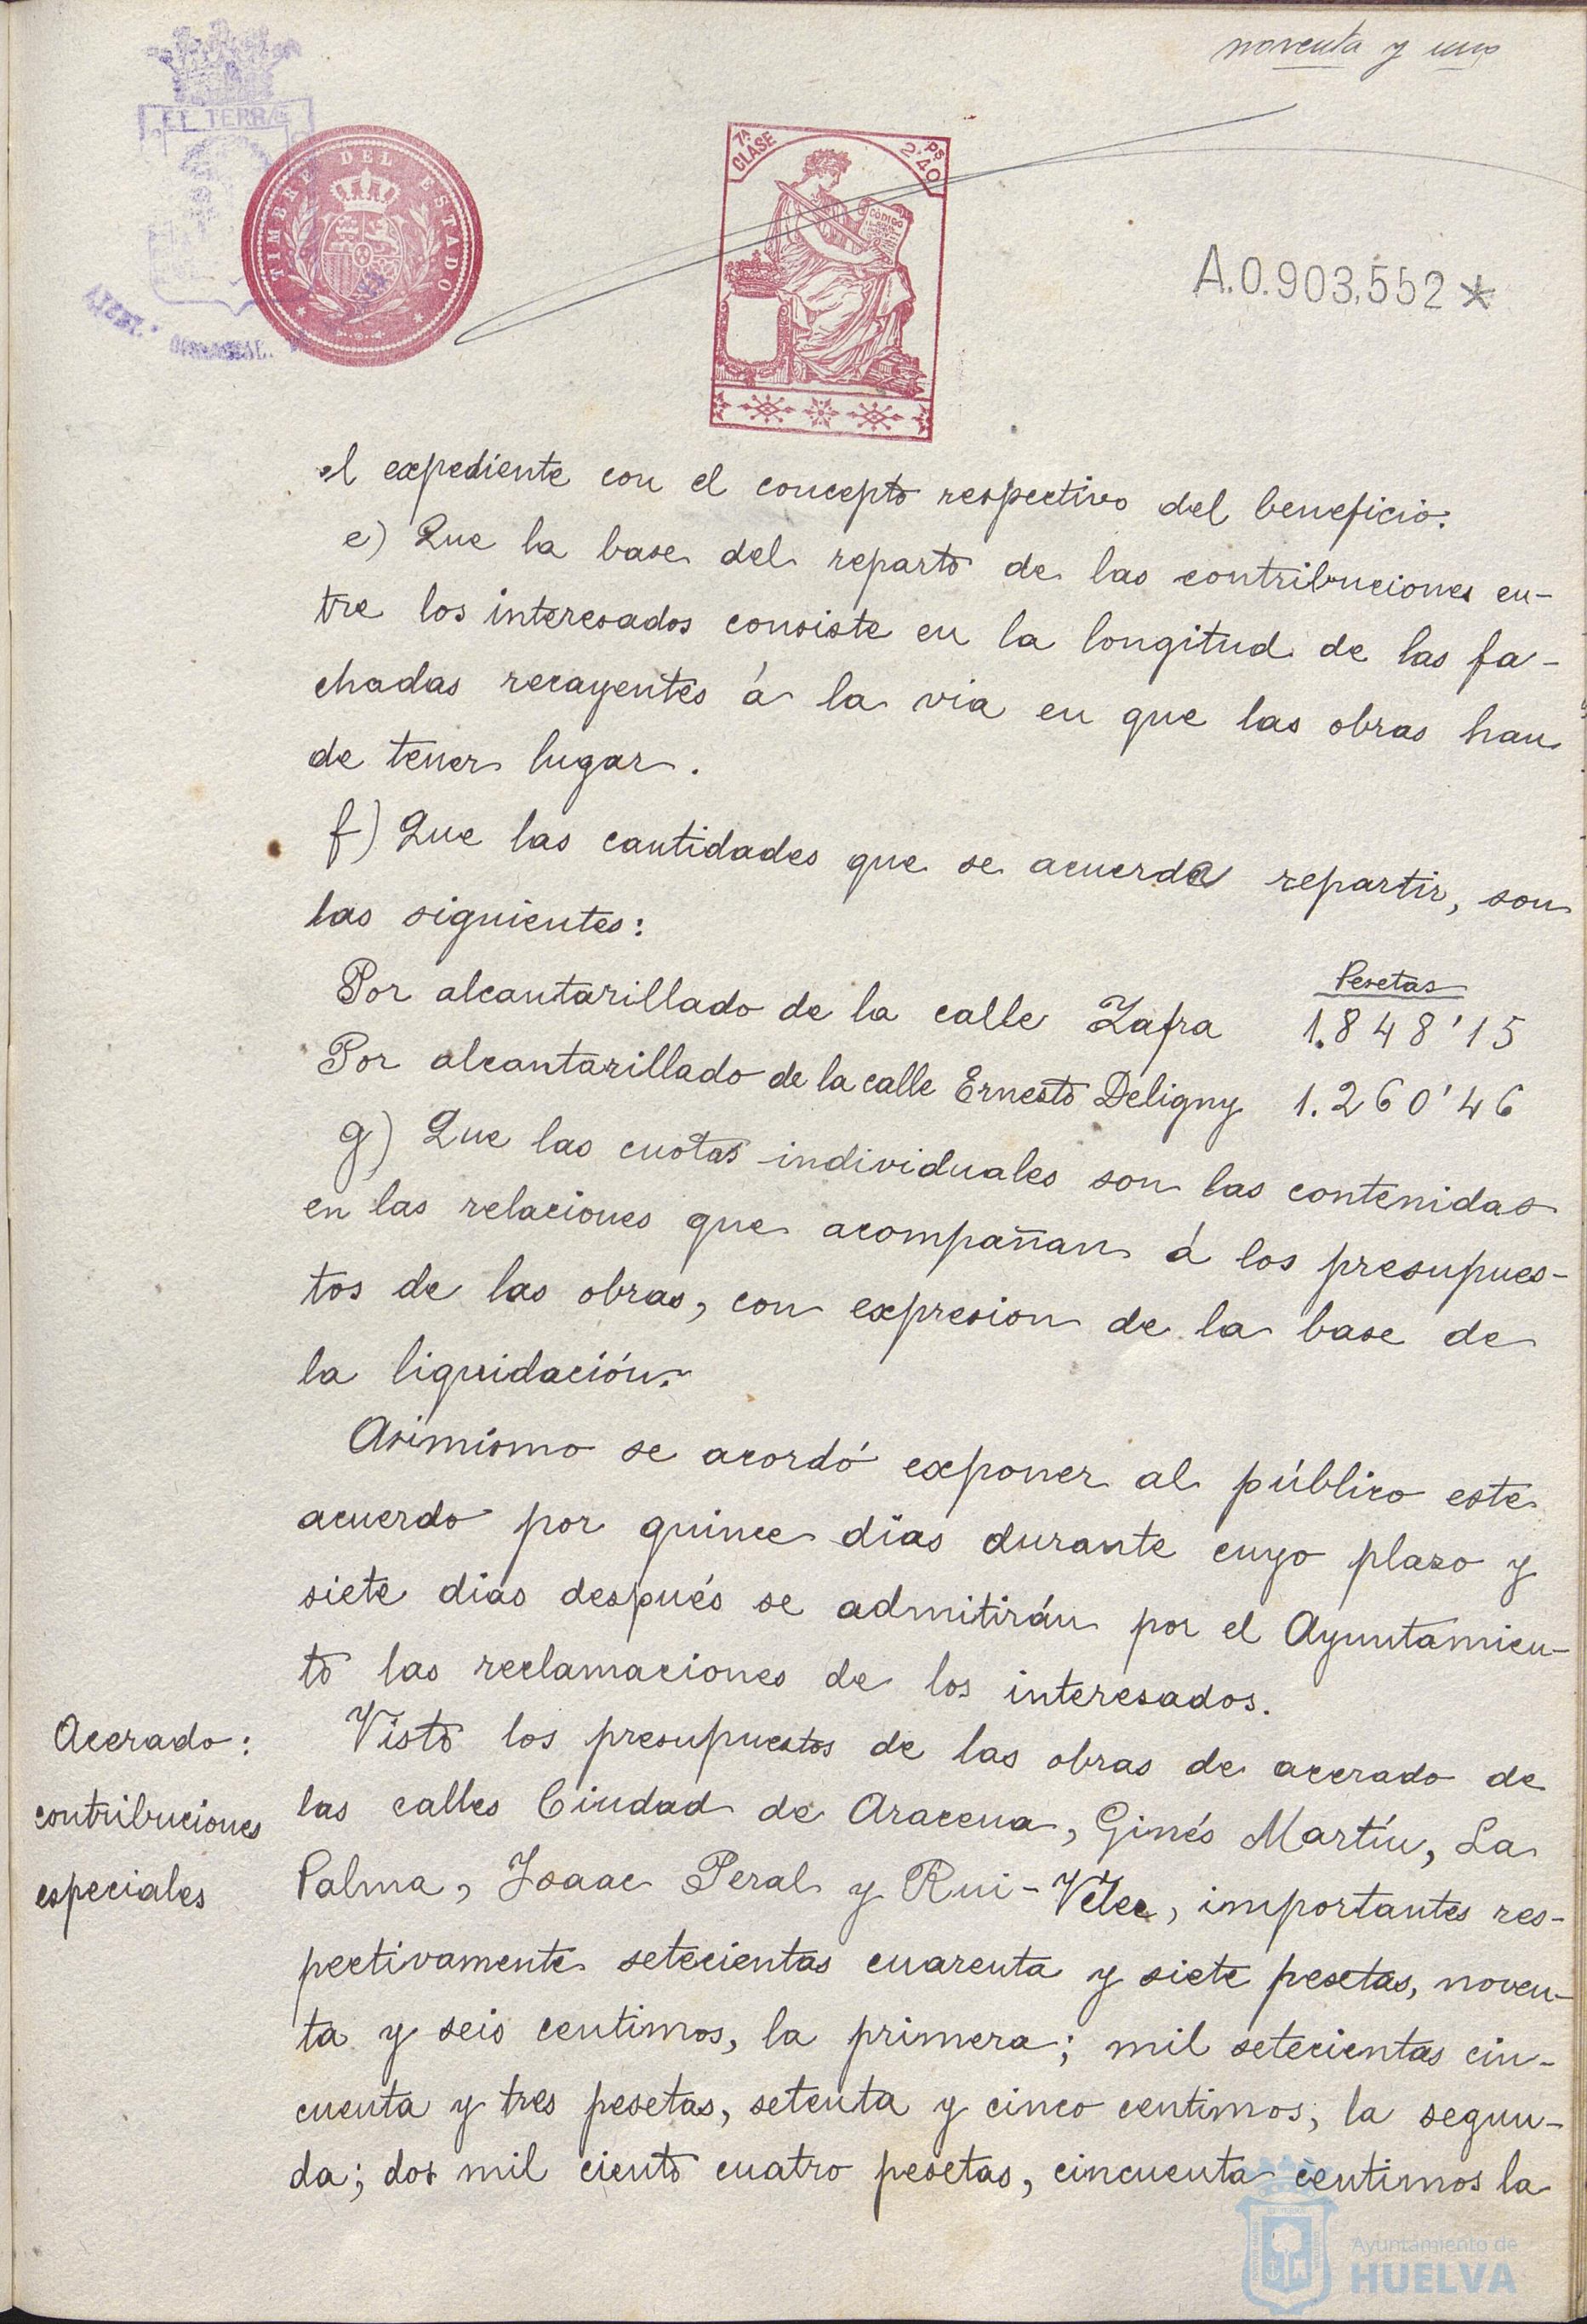 noventa y uno
EL TERR
TIMBRE DEL ESTADO
7ª CLASE
Ps 2'40
CÓDIGO
A.0.903,552*
el expediente con el concepto respectivo del beneficio:
e) Que la base del reparto de las contribuciones en-
tre los interesados consiste en la longitud de las fa-
chadas recayentes á la via en que las obras han
de tener lugar.
f) Que las cantidades que se acuerda repartir, son
las siguientes:
Pesetas
Por alcantarillado de la calle Zafra 1.848'15
Por alcantarillado de la calle Ernesto Deligny 1.260'46
g) Que las cuotas individuales son las contenidas
en las relaciones que acompañan á los presupues-
tos de las obras, con expresion de la base de
la liquidación.
Asimismo se acordó exponer al público este
acuerdo por quince dias durante cuyo plazo y
siete dias después se admitirán por el Ayuntamien-
to las reclamaciones de los interesados.
Acerado:
contribuciones
especiales
Visto los presupuestos de las obras de acerado de
las calles Ciudad de Aracena, Ginés Martín, La
Palma, Isaac Peral y Rui-Velez, importantes res-
pectivamente setecientas cuarenta y siete pesetas, noven-
ta y seis centimos, la primera; mil setecientas cin-
cuenta y tres pesetas, setenta y cinco centimos, la segun-
da; dos mil ciento cuatro pesetas, cincuenta centimos la
Ayuntamiento de
HUELVA